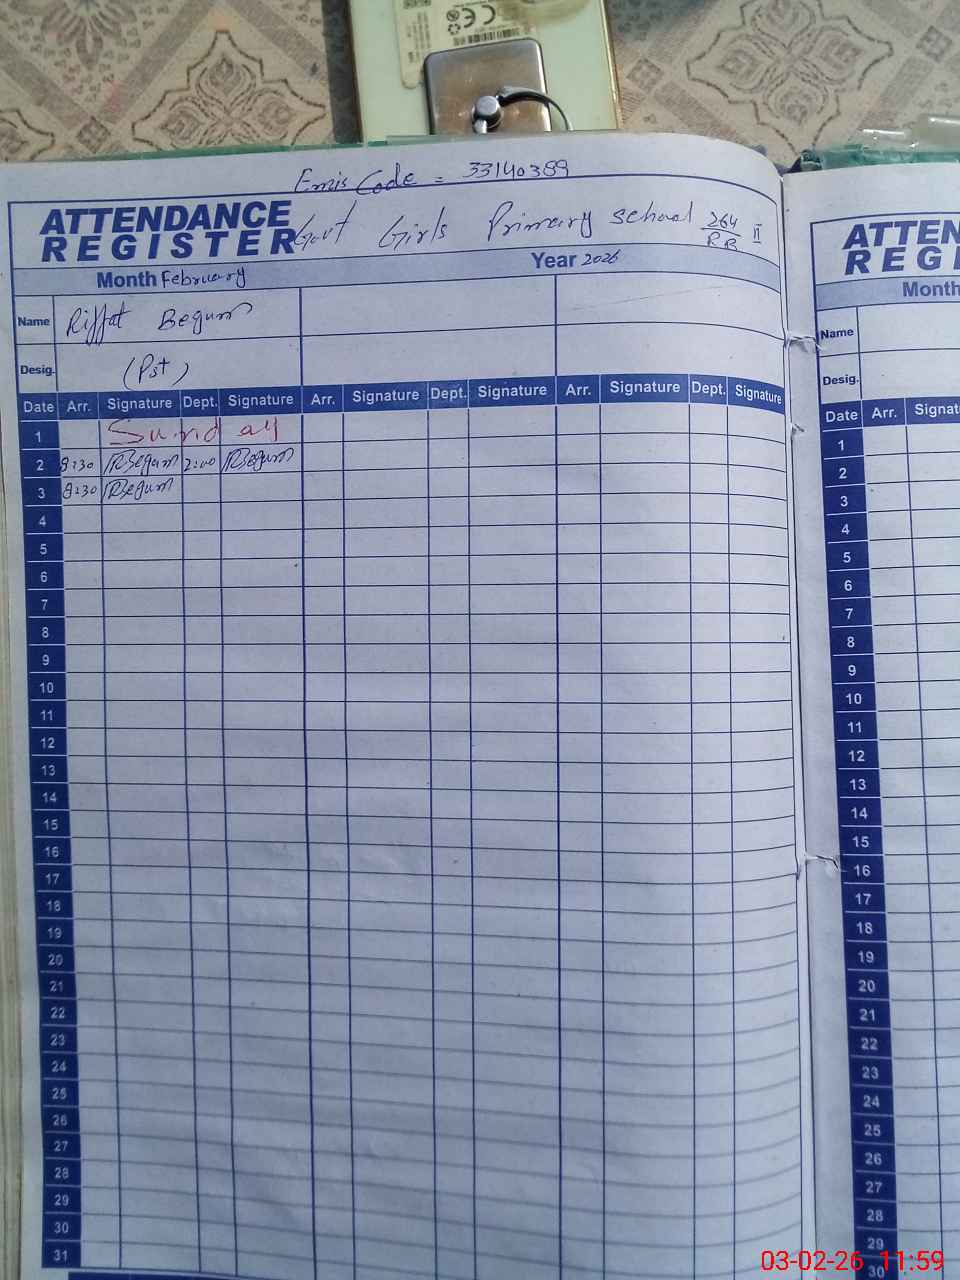 Emis Code = 33140389
ATTENDANCE REGISTER
Govt Girls Primary school 264/RB II
Month February Year 2026
Name Riffat Begum
Desig. (Pst)
Date Arr. Signature Dept. Signature Arr. Signature Dept. Signature Arr. Signature Dept. Signature
1 Sunday
2 8:30 RBegum 2:00 RBegum
3 8:30 RBegum
4
5
6
7
8
9
10
11
12
13
14
15
16
17
18
19
20
21
22
23
24
25
26
27
28
29
30
31
ATTEN
REGI
Month
Name
Desig.
Date Arr. Signat
1
2
3
4
5
6
7
8
9
10
11
12
13
14
15
16
17
18
19
20
21
22
23
24
25
26
27
28
29
30
03-02-26 11:59